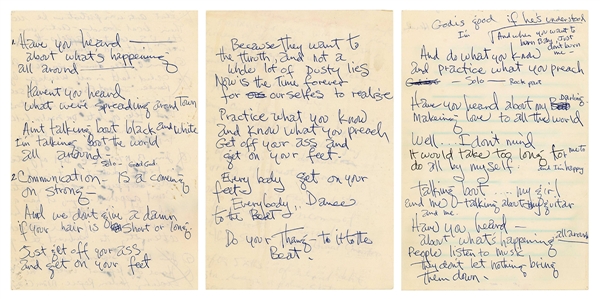 1. Have you heard
about what's happening
all around
Havent you heard
what we're spreading around Town
Aint talking bout black and white
Im talking bout the world
all around
Solo
2. Communication is a coming
on strong
And we dont give a damn
if your hair is short or long
Just get off your ass
and get on your feet
Because they want to
the thruth, and not a
whole lot of Dusty lies
Now is the time forever
for ourselfes to realize
Practice what you know
and know what you preach
Get off your ass and
get on your feet.
Every body get on your
feet
Everybody, Dance
to the Beat
Do your Thang to it to the
Beat.
God is good if he's understood
Im
And when you want to
burn Baby, Just
dont burn
me
And do what you know
and practice what you preach
Solo Rock part
Have you heard about my Darling
Makeing love to all the world
Well.. I dont mind
It would take too long for me to
do all by myself and Im horny
talking bout my girl
and me talking about my guitar
and me.
Have you heard
about what's happening all around
People listen to music
They dont let nothing bring
Them down.